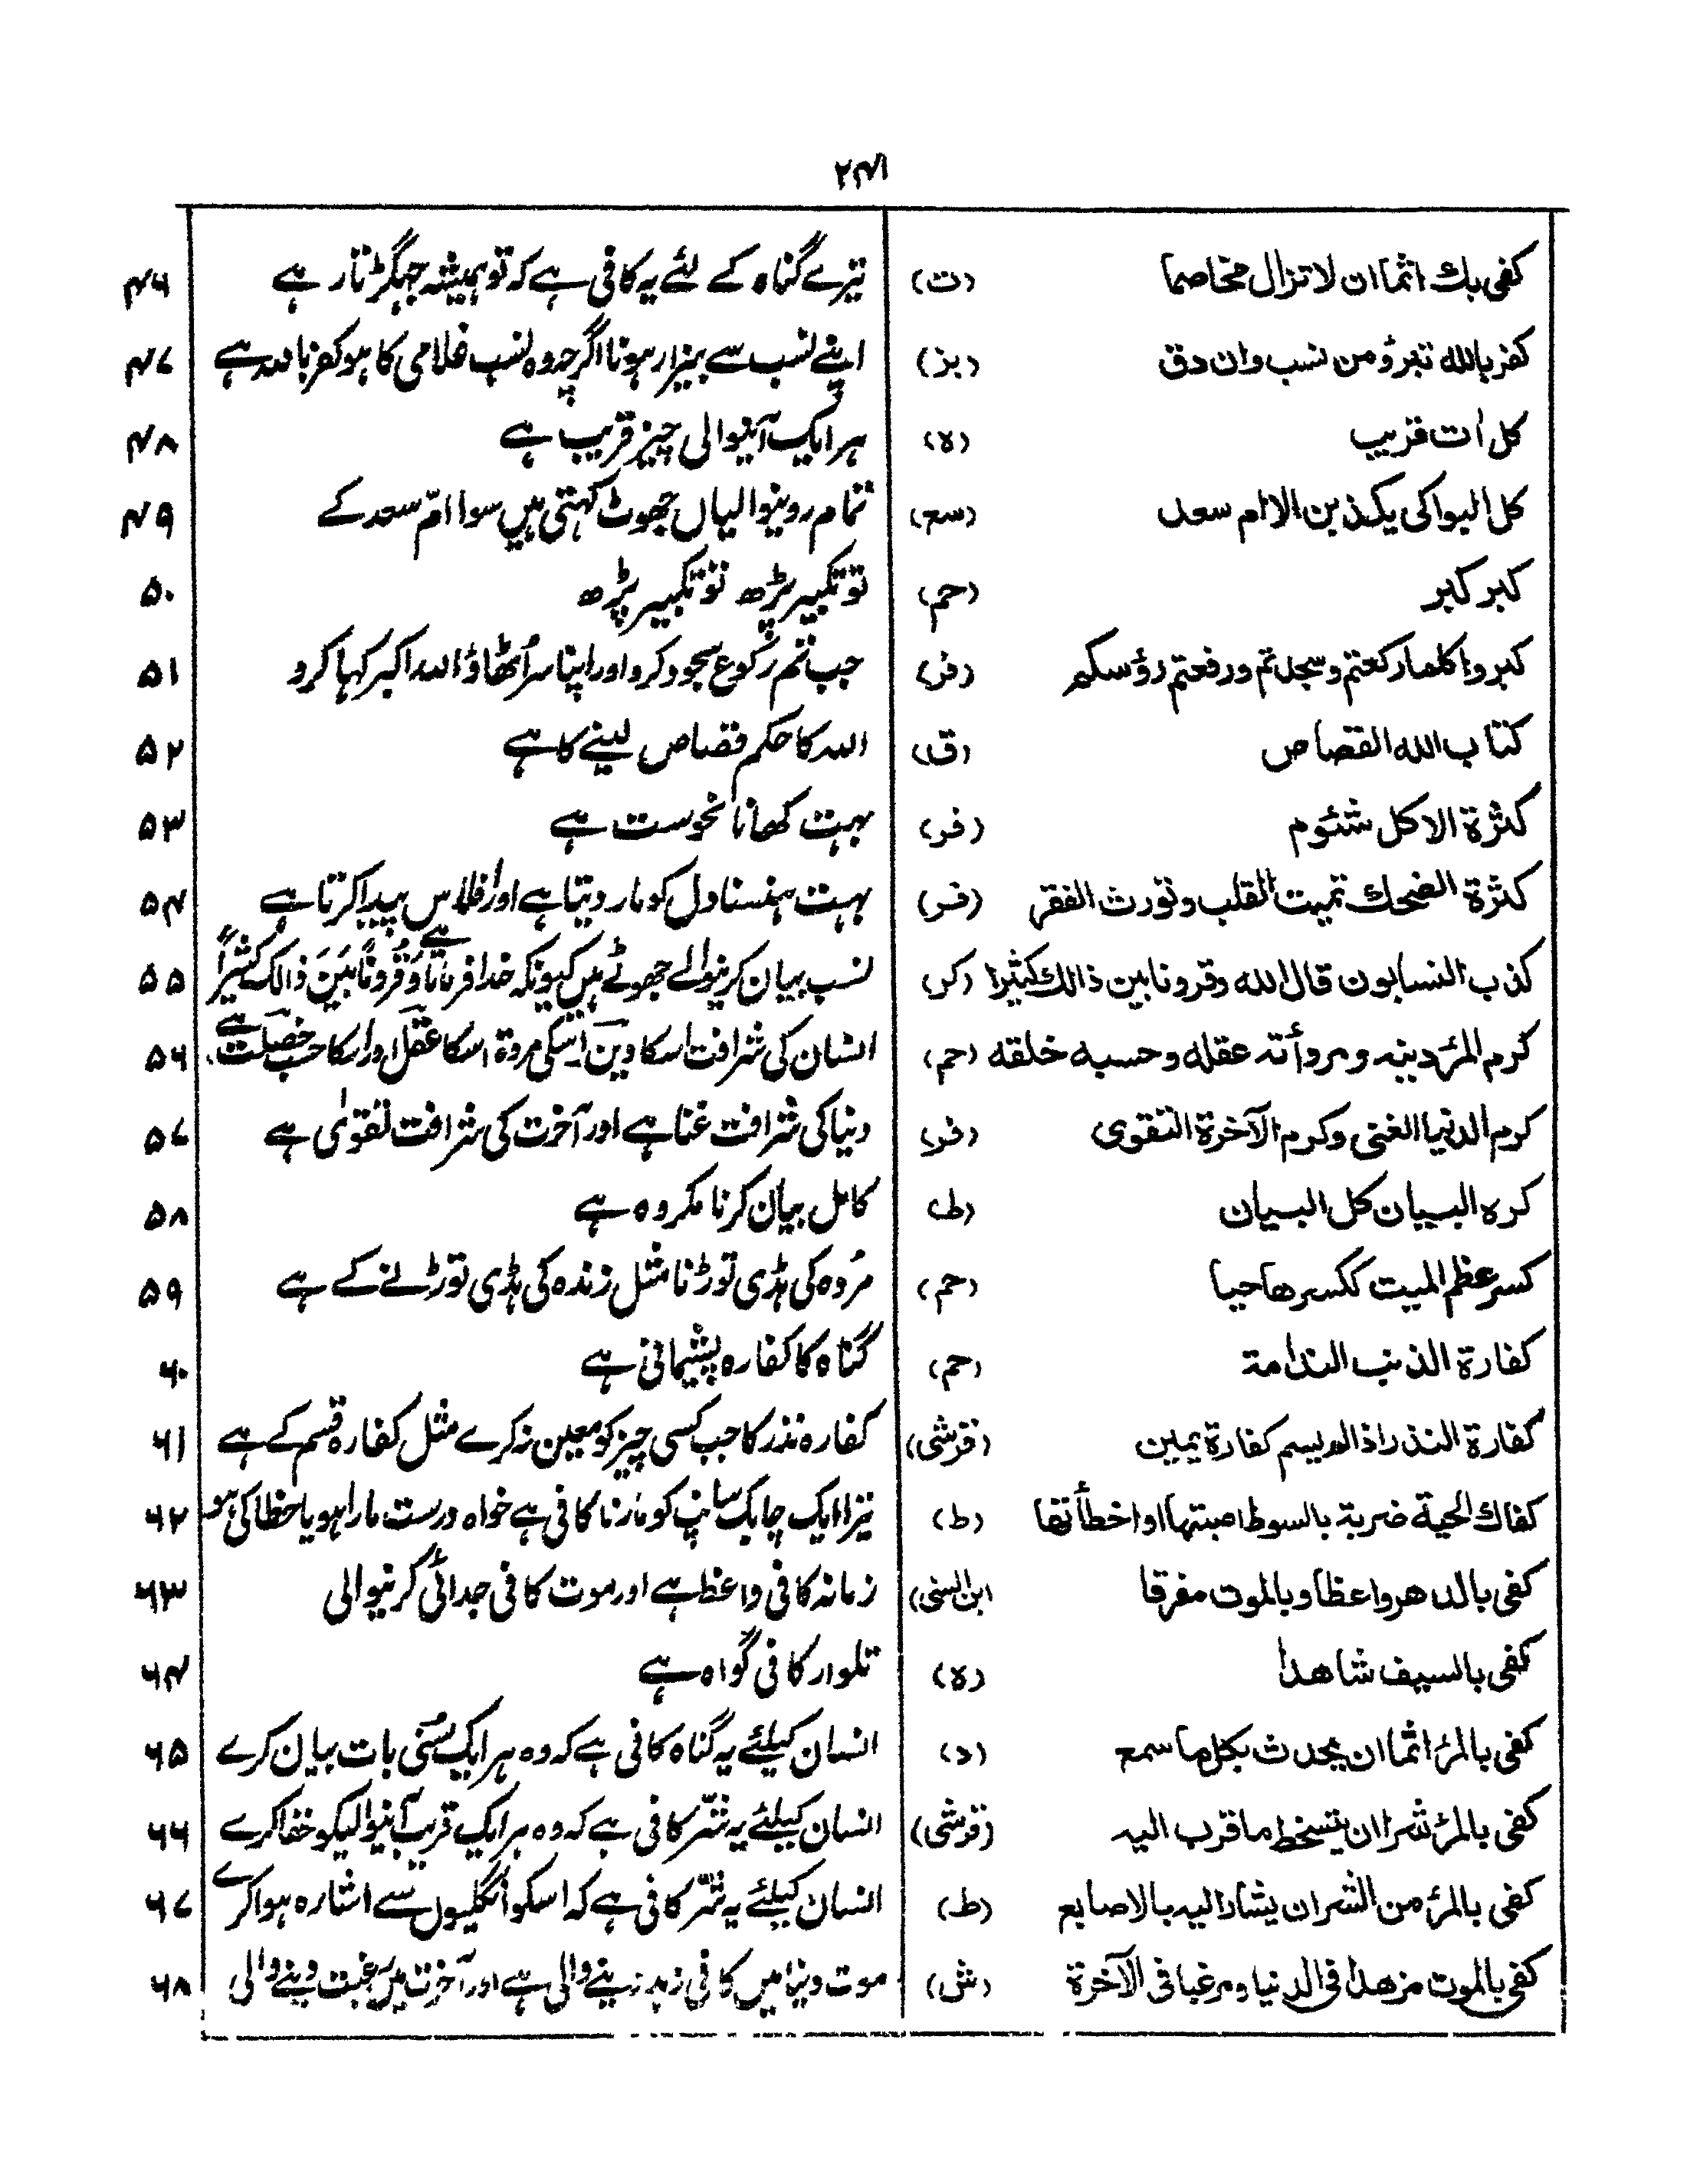 ۲۴۱
كفى بك اثما ان لا تزال مخاصما (ت) تیرے گناہ کے لئے یہ کافی ہے کہ تو ہمیشہ جہگڑتا رہے ۴۶
كفر بالله تبرؤ من نسب وان دق (بز) اپنے نسب سے بیزار ہونا اگرچہ وہ نسب غلامی کا ہو کفر باللہ ہے ۴۷
كل اٰت قريب (ہ) ہر ایک آنیوالی چیز قریب ہے ۴۸
كل البواكى يكذبن الا ام سعد (سع) تمام روینوالیاں جھوٹ کہتی ہیں سوا امّ سعد کے ۴۹
كبر كبر (حم) تو تکبیر پڑھ تو تکبیر پڑھ ۵۰
كبروا كلما ركعتم وسجدتم ورفعتم رؤسكم (فر) جب تم رکوع سجود کرو اور اپنا سر اُٹھاؤ اللہ اکبر کہا کرو ۵۱
كتاب الله القصاص (ق) اللہ کا حکم قصاص لینے کا ہے ۵۲
كثرة الاكل شئوم (فر) بہت کھانا نحوست ہے ۵۳
كثرة الضحك تميت القلب وتورث الفقر (فر) بہت ہنسنا دل کو مار دیتا ہے اور افلاس پیدا کرتا ہے ۵۴
كذب النسابون قال الله وقرونا بين ذالك كثيرا (کر) نسب بیان کرنیوالے جھوٹے ہیں کیونکہ خدا فرماتا ہے وَقُرُونًا بَیْنَ ذَالِکَ کَثِیْرًا ۵۵
كرم المرٔ دينه ومروأته عقله وحسبه خلقه (حم) انسان کی شرافت اسکا دین اسکی مروۃ اسکا عقل اور اسکا حسب خصلت ہے ۵۶
كرم الدنيا الغنى وكرم الآخرة التقوى (فر) دنیا کی شرافت غنا ہے اور آخرت کی شرافت تقویٰ ہے ۵۷
كره البيان كل البيان (ط) کامل بیان کرنا مکروہ ہے ۵۸
كسر عظم الميت ككسرها حيا (حم) مردہ کی ہڈی توڑنا مثل زندہ کی ہڈی توڑنے کے ہے ۵۹
كفارة الذنب الندامة (حم) گناہ کا کفارہ پشیمانی ہے ۶۰
كفارة النذر اذا لم يسم كفارة يمين (قرشی) کفارہ نذر کا جب کسی چیز کو معین نہ کرے مثل کفارہ قسم کے ہے ۶۱
كفاك الحية ضربة بالسوط اصبتها او اخطأتها (ط) تیرا ایک چابک سانپ کو مارنا کافی ہے خواہ درست مارا ہو یا خطا کی ہو ۶۲
كفى بالدهر واعظا وبالموت مفرقا (ابن السنی) زمانہ کافی واعظ ہے اور موت کافی جدائی کرنیوالی ۶۳
كفى بالسيف شاهدا (ہ) تلوار کافی گواہ ہے ۶۴
كفى بالمرٔ اثما ان يحدث بكل ما سمع (د) انسان کیلئے یہ گناہ کافی ہے کہ وہ ہر ایک سُنی بات بیان کرے ۶۵
كفى بالمرٔ شرا ان يتسخط ما قرب اليه (قرشی) انسان کیلئے یہ شر کافی ہے کہ وہ ہر ایک قریب آنیوالیکو خفا کرے ۶۶
كفى بالمرٔ من الشر ان يشار اليه بالاصابع (ط) انسان کیلئے یہ شر کافی ہے کہ اسکو اُنگلیوں سے اشارہ ہوا کرے ۶۷
كفى بالموت مزهدا فى الدنيا ومرغبا فى الآخرة (ش) موت دنیا میں کافی زہد دینے والی ہے اور آخرت میں رغبت دینے والی ۶۸